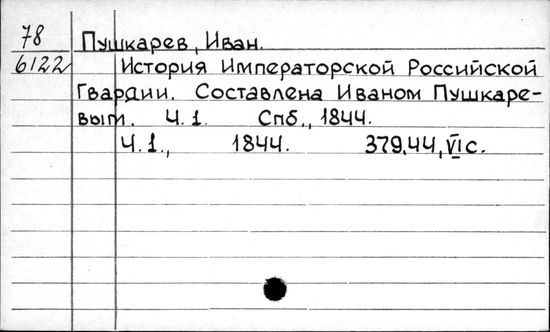 78
Пушкарев, Иван.
6122
История Императорской Российской
Гвардии. Составлена Иваном Пушкаре-
вым. Ч.1. Спб., 1844.
Ч.1., 1844. 379,44,VI с.